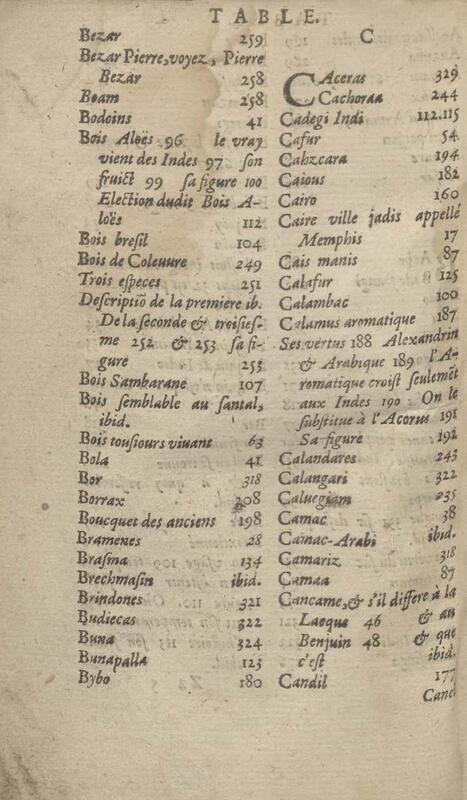 TABLE.
Bezar 259
Bezar Pierre, voyez, Pierre
Bezar 258
Boam 258
Bodoins 41
Bois Aloës 96 le vray
vient des Indes 97 son
fruict 99 sa figure 100
Election dudit Bois A-
loës 112
Bois bresil 104
Bois de Coleuure 249
Trois especes 251
Descriptiõ de la premiere ib.
De la seconde & troisies-
me 252 & 253 sa fi-
gure 253
Bois Sambarane 107
Bois semblable au santal,
ibid.
Bois tousiours viuant 63
Bola 41
Bor 318
Borrax 208
Boucquet des anciens 198
Bramenes 28
Brasma 134
Brechmasin ibid.
Brindones 321
Budiecas 322
Buna 324
Bunapalla 123
Bybo 180
C
CAceras 329
Cachoraa 244
Cadegi Indi 112.115
Cafur 54
Cahzcara 194
Caious 182
Cairo 160
Caire ville jadis appellé
Memphis 17
Cais manis 87
Calafur 125
Calambac 100
Calamus aromatique 187
Ses vertus 188 Alexandrin
& Arabique 189 l'A-
romatique croist seulemẽt
aux Indes 190 On le
substitue à l'Acorus 191
Sa figure 192
Calandares 243
Calangari 322
Caluegiam 235
Camac 38
Camac-Arabi ibid.
Camariz 318
Camaa 87
Cancame, & s'il differe à la
Lacque 46 & au
Benjuin 48 & que
c'est ibid.
Candil 177
Canel